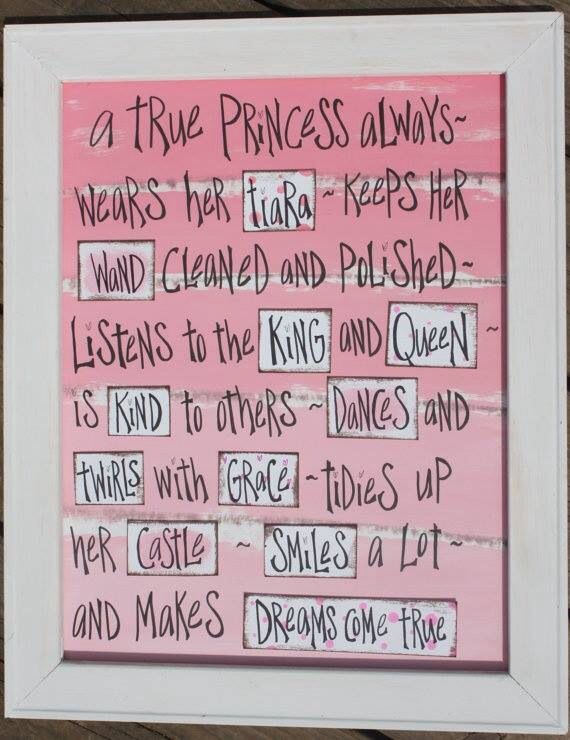 a tRue PRiNCeSS aLWaYS~
WeaRS heR tiaRa ~ KeePS HeR
WaND CLeaNeD aND PoLiSheD~
LiSteNS to the KiNG aND QueeN ~
iS KiND to otheRS ~ DaNCeS aND
tWiRLS with GRaCe ~ tiDieS uP
heR CaStLe ~ SMiLeS a Lot ~
aND MaKeS DReaMS CoMe tRue